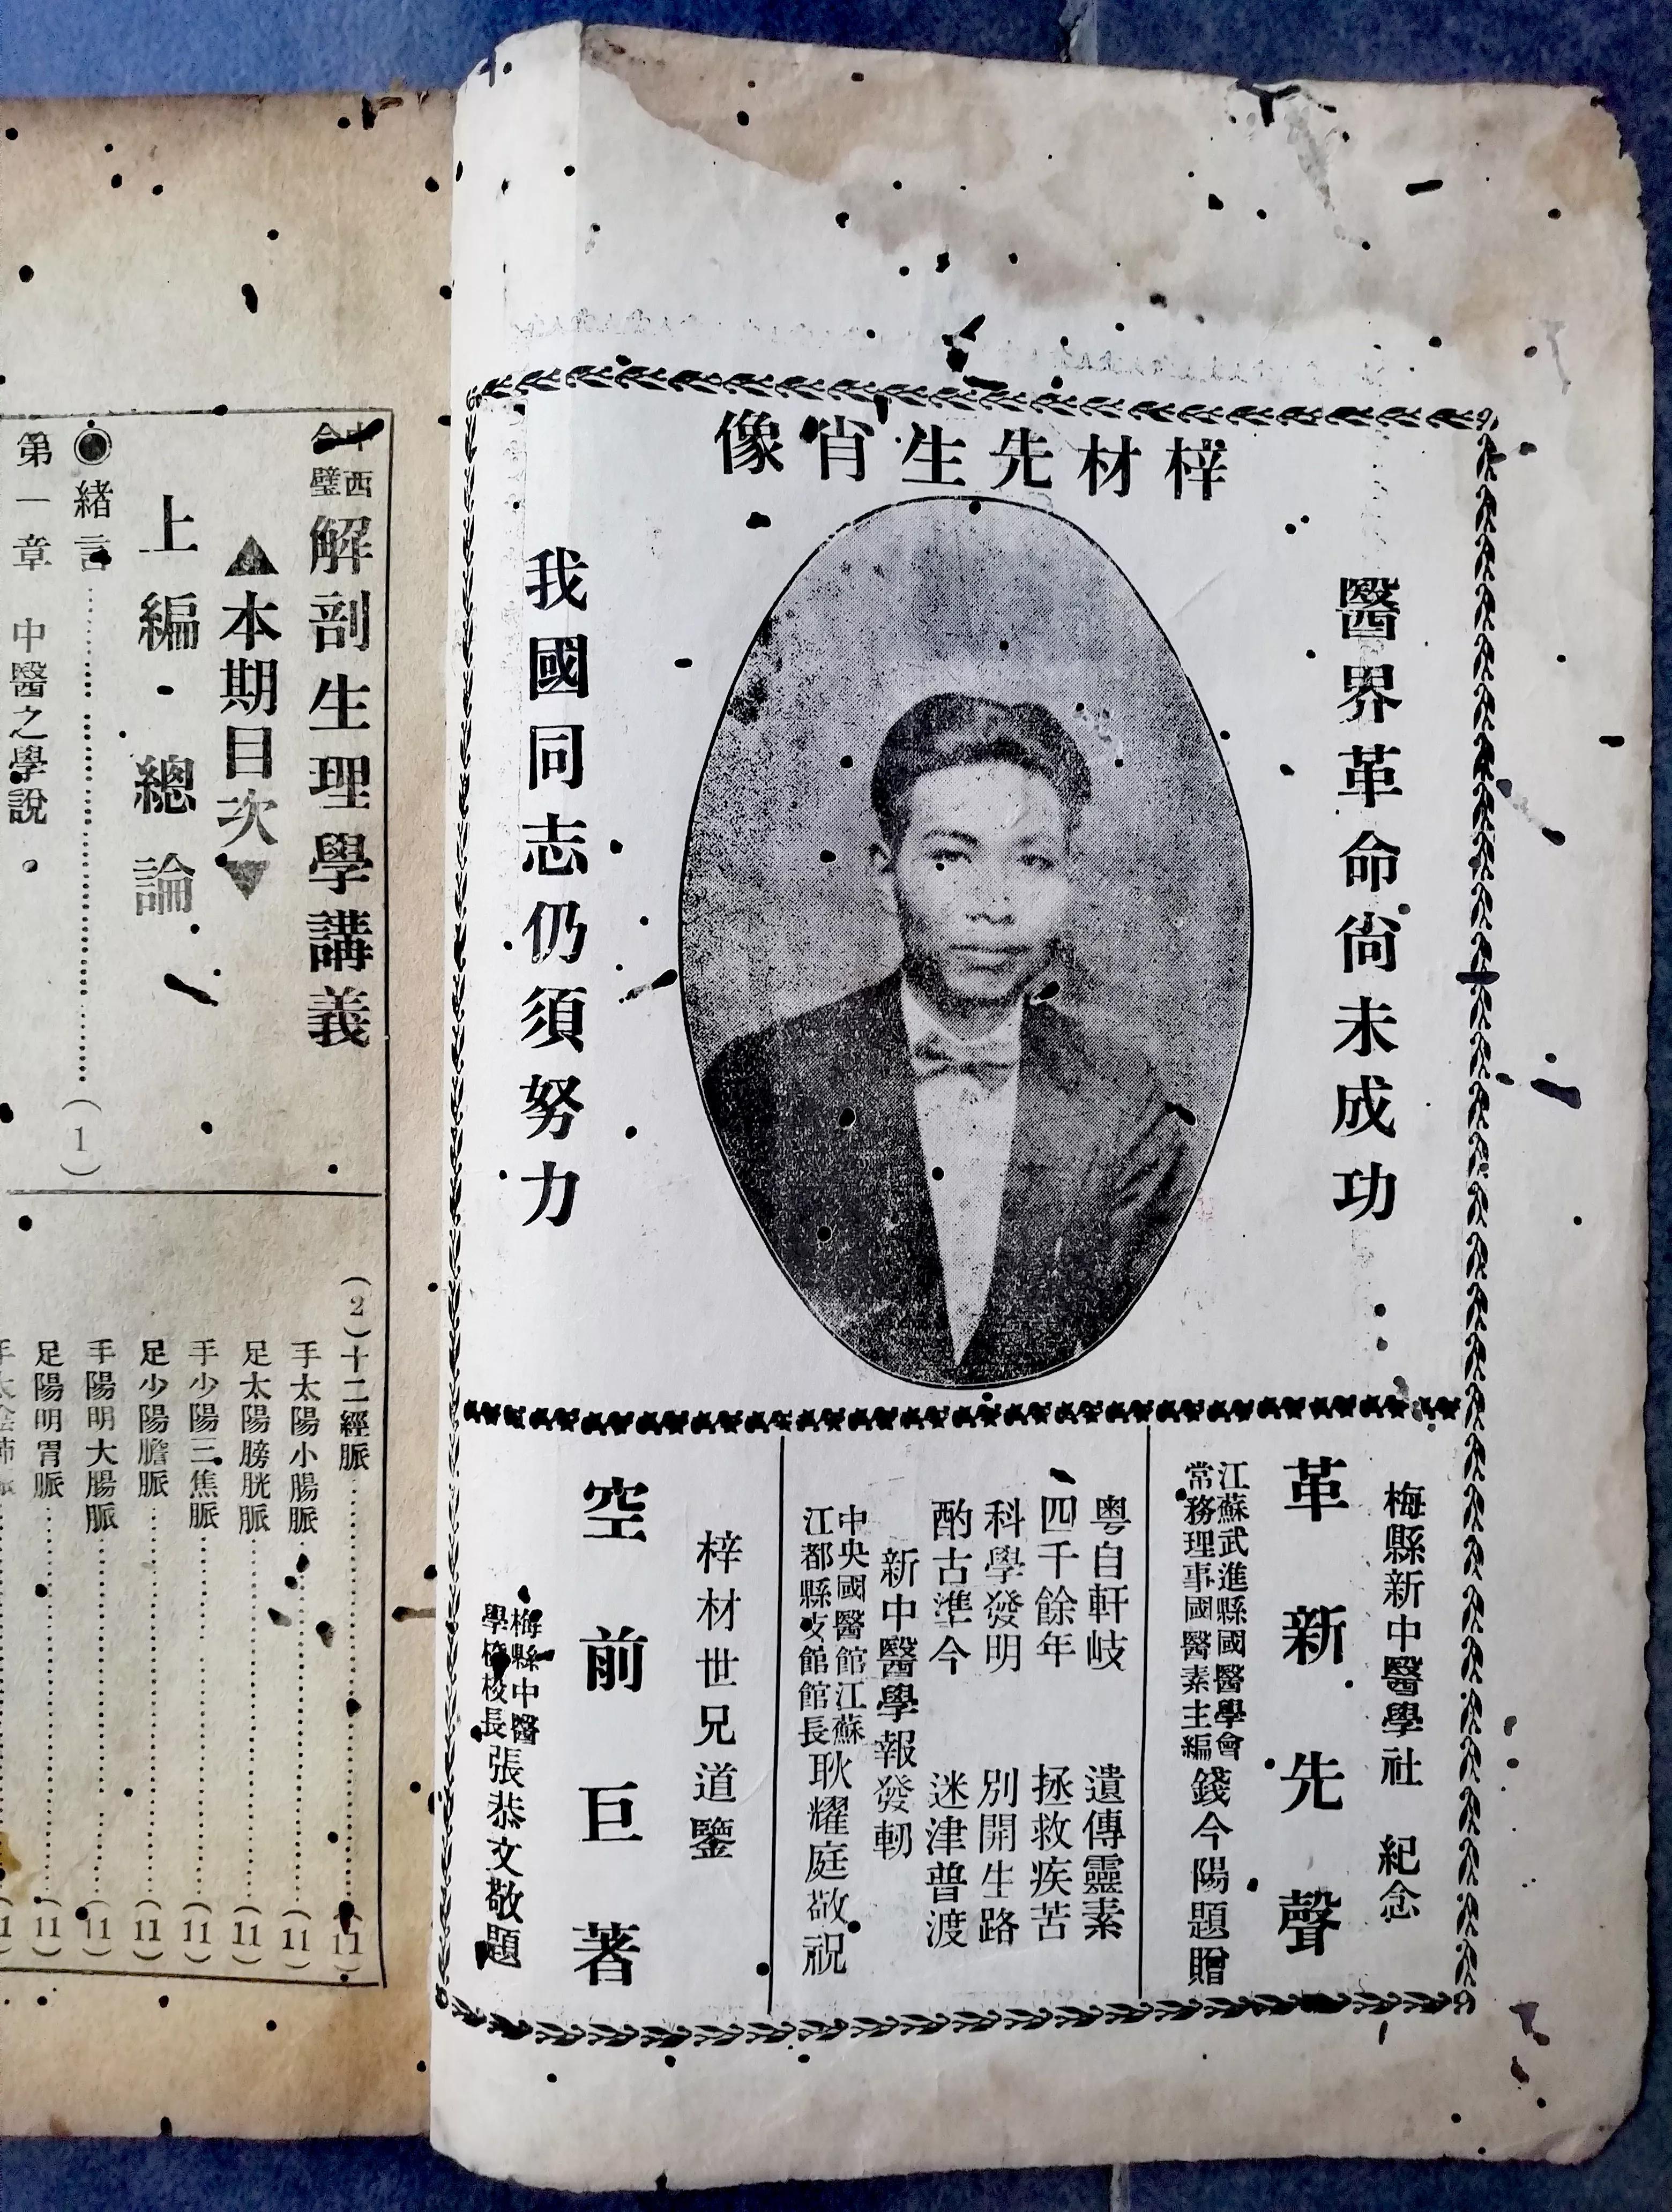 梓材先生肖像
醫界革命尚未成功
我國同志仍須努力
梅縣新中醫學社 紀念
革新先聲
江蘇武進縣國醫學會
常務理事國醫素主編
錢今陽題贈
粵自軒岐 遺傳靈素
四千餘年 拯救疾苦
科學發明 別開生路
酌古準今 迷津普渡
新中醫學報發軔
中央國醫館江蘇
江都縣支館館長
耿耀庭敬祝
梓材世兄道鑒
空前巨著
梅縣中醫
學校校長
張恭文敬題
中西
合璧
解剖生理學講義
▲本期目次▼
上編·總論
◉緒言……(1)
第一章 中醫之學說。
(2)十二經脈……(11)
手太陽小腸脈……(11)
足太陽膀胱脈……(11)
手少陽三焦脈……(11)
足少陽膽脈……(11)
手陽明大腸脈……(11)
足陽明胃脈……(11)